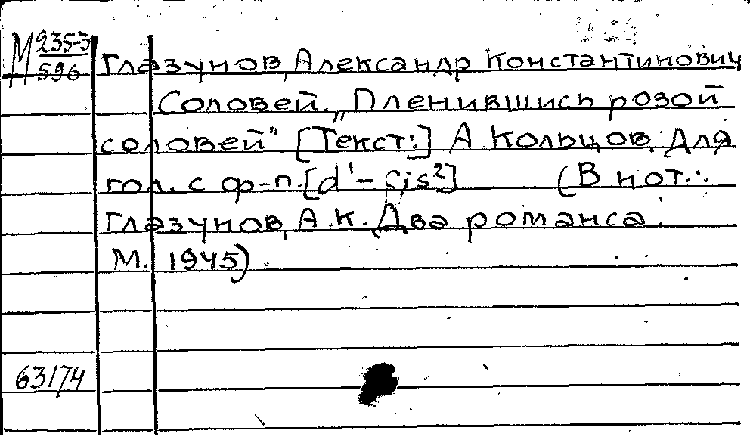 М 235-3
596
Глазунов, Александр Константинович
Соловей. „Пленившись розой
соловей" [Текст:] А. Кольцов. Для
гол. с ф-п. [d¹ – fis²] (В нот.:
Глазунов, А.К. Два романса.
М. 1945)
63174